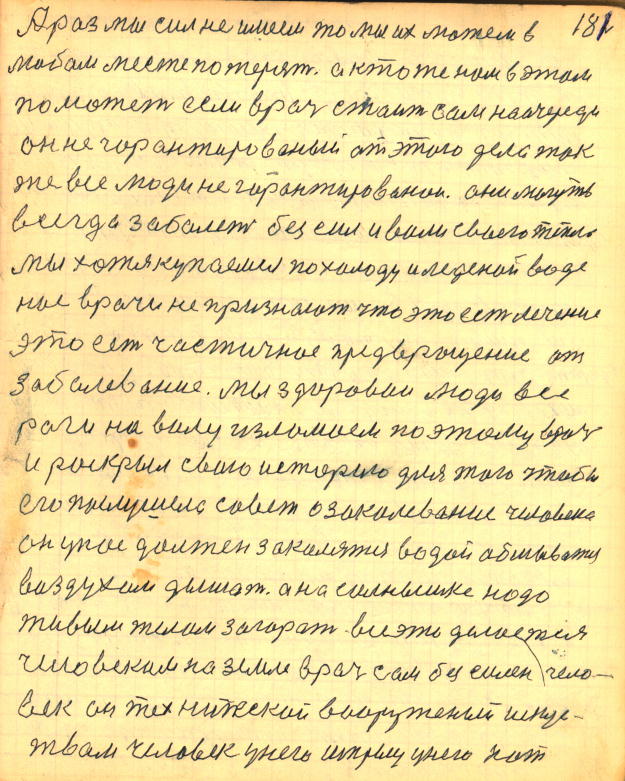 181
А раз мы сил не имеем то мы их можем в
любом месте потерят. а кто же нам в этом
поможет если врач стаит сам на очереди
он не горантированый от этого дела так
же все люди не горантирований. они могуть
всегда забалет без сил и воли своего тела
мы хотя купаемся по холоду и леденой воде
нас врачи не признают что это ест лечение
это ест частичное предвращение от
забалевание. мы здороваи люди все
роги на валу изломаем поэтому врач
и роскрыл свою историю для того чтобы
его послушела совет о закалевание человека
он у нас должен закалятся водой обмыватся
воздухом дышат. а на солнышке надо
живым телом загорат. все это делается
человеком на земле врач сам без силен чело-
век он технической вооруженый исску-
твам человек у него шприц у него нож